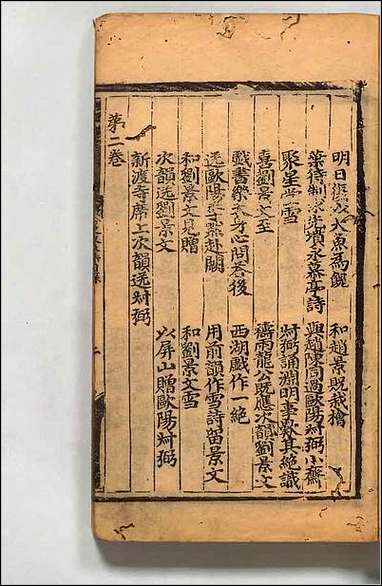 明日復以大魚為饋　和趙景貺栽檜
葉待制求先墳永慕亭詩　與趙陳同過歐陽叔弼小齋
聚星堂雪　叔弼誦淵明事歎其絕識
喜劉景文至　禱雨龍公既應次韻劉景文
戲書樂天身心問荅後　西湖戲作一絕
送歐陽季默赴闕　用前韻作雪詩留景文
和劉景文見贈　和劉景文雪
次韻送劉景文　以屏山贈歐陽叔弼
新渡寺席上次韻送叔弼
苐二卷